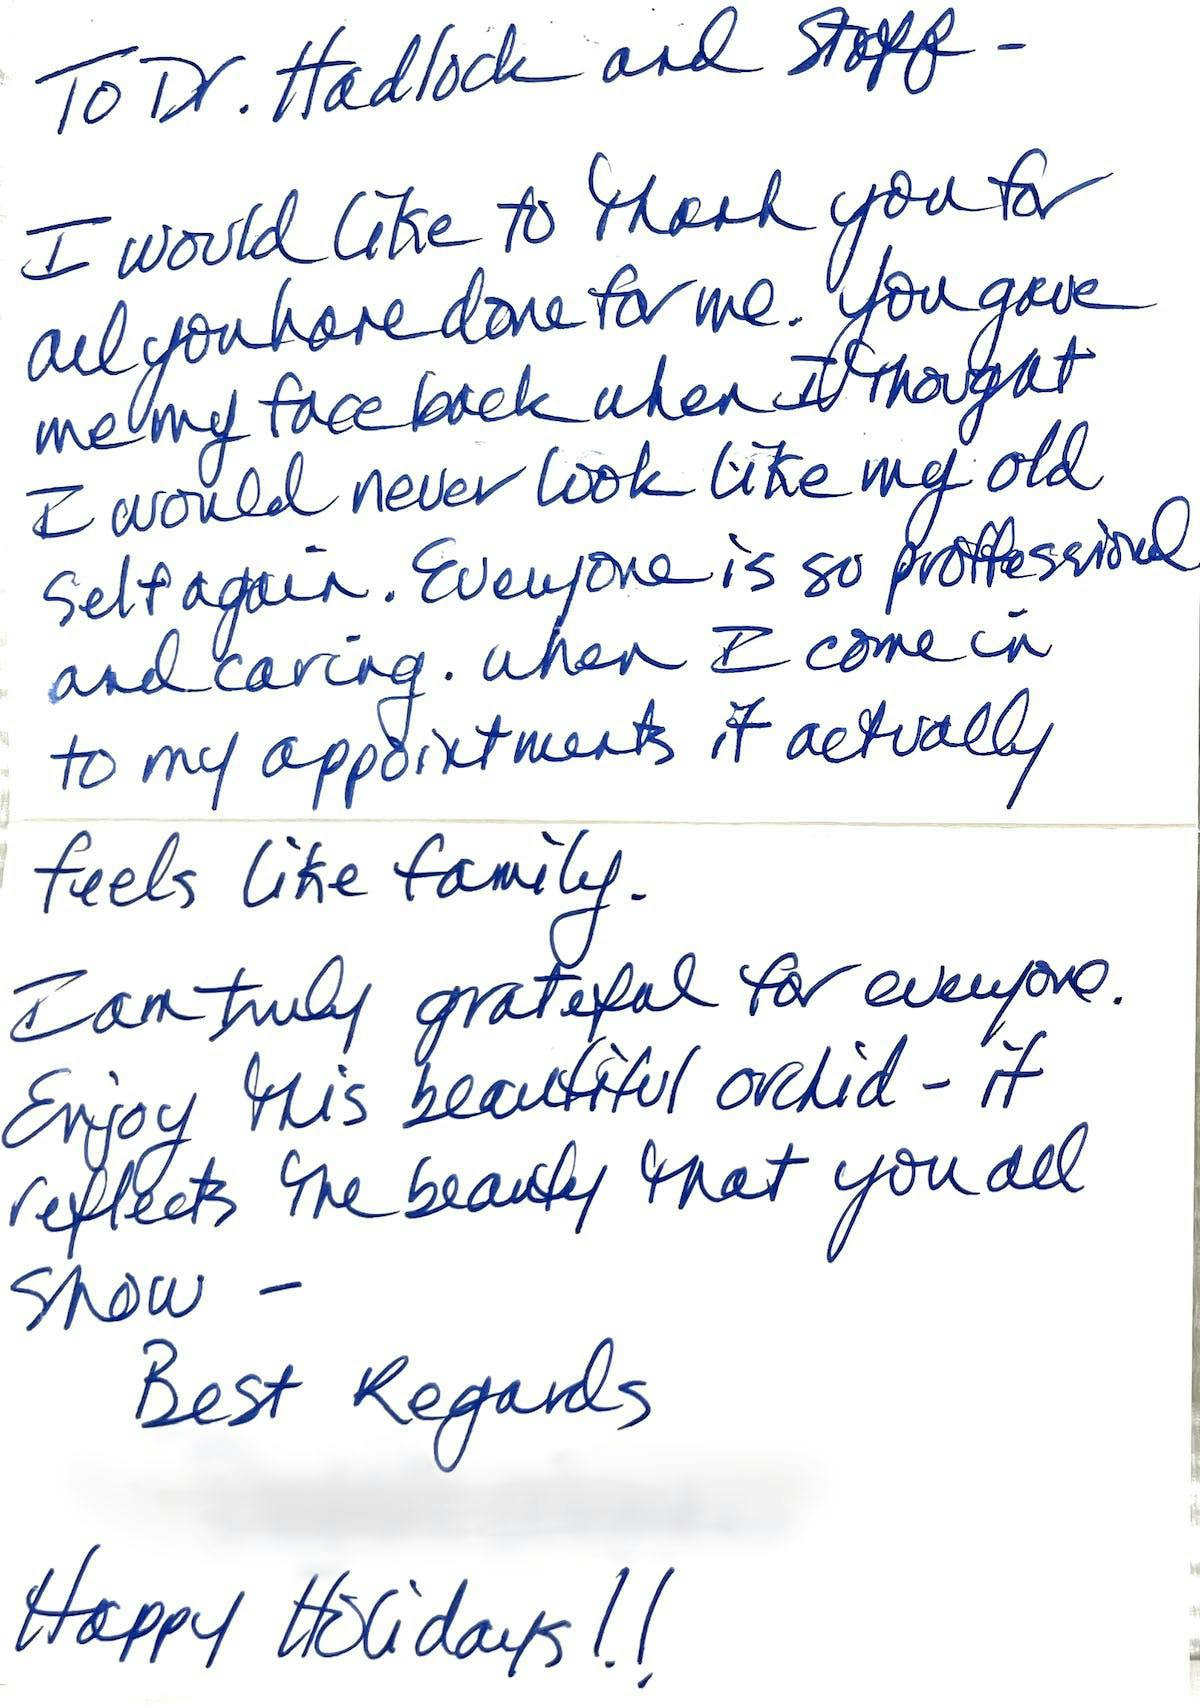 To Dr. Hadlock and Staff -
I would like to thank you for
all you have done for me. You gave
me my face back when I thought
I would never look like my old
self again. Everyone is so proffessional
and caring. when I come in
to my appointments it actually
feels like family.
I am truly grateful for everyone.
Enjoy this beautiful orchid - it
reflects the beauty that you all
show -
Best Regards
Happy Holidays!!